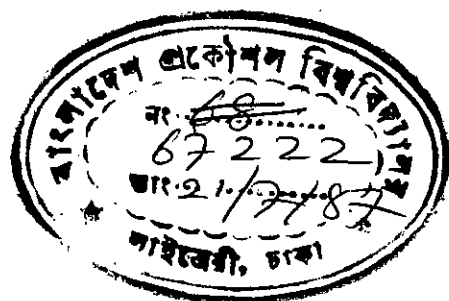 বাংলাদেশ প্রকৌশল বিশ্ববিদ্যালয়
নং 68
67222
তাং 21/7/87
লাইব্রেরী, ঢাকা